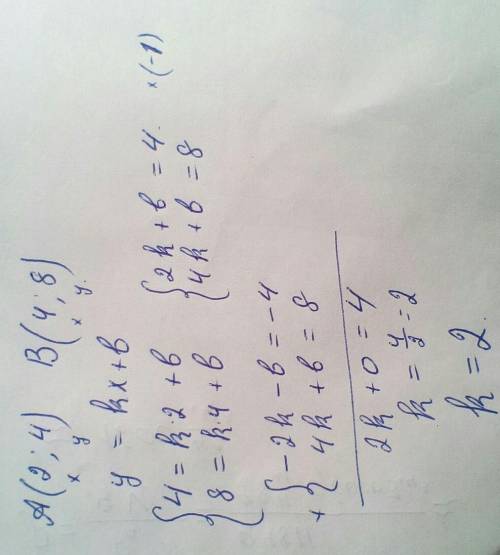 A(2; 4) B(4; 8)
x y x y.
y = kx + b
{4 = k·2 + b {2k + b = 4. ×(-1)
{8 = k·4 + b {4k + b = 8
+ {-2k - b = -4
{4k + b = 8
2k + 0 = 4
k = 4/2 = 2
k = 2.